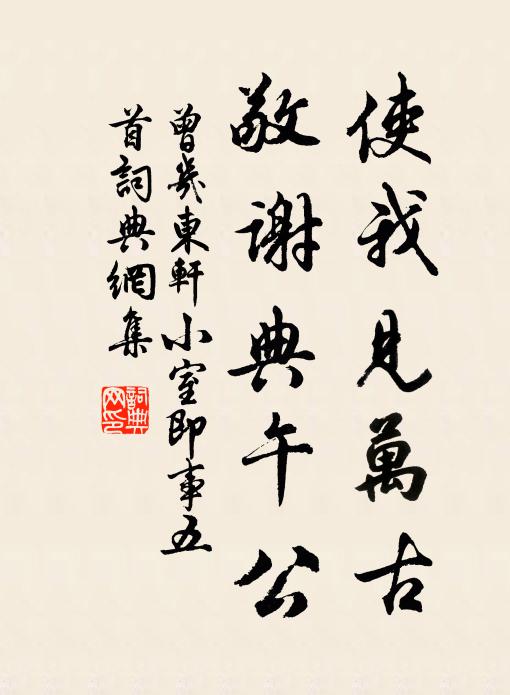 使我見萬古
敬謝典午公
曾幾東軒小室即事五
首詞典網集
詞典
网印